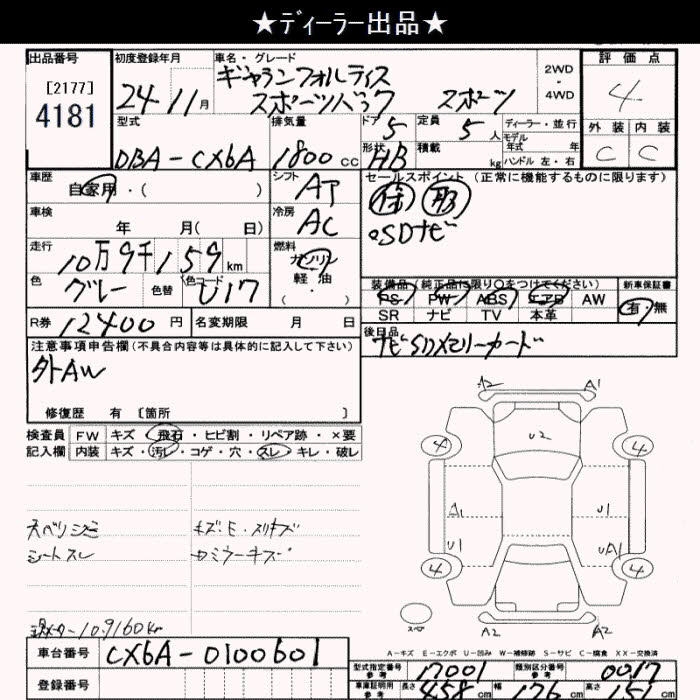 ★ディーラー出品★
出品番号 初度登録年月 車名・グレード 評価点
[2177] 4181 24-11月 ギャランフォルティス スポーツバック スポーツ 2WD・4WD 4
型式 排気量 ドア 定員 ディーラー・並行 外装 内装
DBA-CX6A 1800cc 5 5人 モデル年式 年 C C
形状 HB 積載 kg ハンドル 左・右
車歴 自家用・( ) シフト AT セールスポイント (正常に機能するものに限ります)
車検 年 月( 日) 冷房 AC
SDナビ
走行 10万9千159km 燃料 ガソリン 軽油
色 グレー 色替 色コード U17 装備品(純正品に限り○をつけてください) 新車保証書
PS PW ABS エアB AW 有・無
SR ナビ TV 本革
R券 12400円 名変期限 月 日 後日品
ナビSDメモリーカード
注意事項申告欄(不具合内容等は具体的に記入して下さい)
外AW
修復歴 有 [箇所 ]
検査員 FW キズ・飛石・ヒビ割・リペア跡・×要
記入欄 内装 キズ・汚レ・コゲ・穴・スレ・キレ・破レ
A2 A1
U2
4 4
A1 U1
U1 UA1
4 4
シートスレ
A2 A2
A-キズ E-エクボ U-凹み W-補修跡 S-サビ C-腐食 XX-交換済
車台番号 CX6A-0100601
型式指定番号 参考 17001 類別区分番号 参考 0017
登録番号 車庫証明用 参考 長さ 458cm 幅 176cm 高さ 151cm